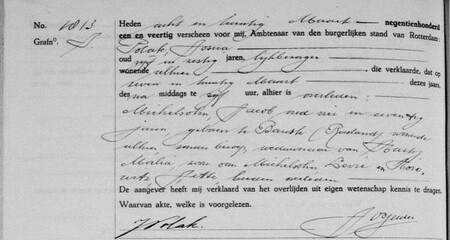 No. 1813
Grafno. D.
Heden acht en twintig Maart negentienhonderd
een en veertig verscheen voor mij, Ambtenaar van den burgerlijken stand van Rotterdam:
Polak, Josua
oud vijf en zestig jaren, lijkbezorger
wonende alhier, die verklaarde, dat op
zeven en twintig Maart dezes jaars,
des na middags te vijf uur, alhier is overleden:
Michelsohn, Jacob, oud en zeventig
jaren, geboren te Bausk (Rusland) wonende
alhier, zonder beroep, weduwnaar van
Malia, zoon van Michelsohn, Levie en
witz, Jette, beiden overleden
De aangever heeft mij verklaard van het overlijden uit eigen wetenschap kennis te dragen.
Waarvan akte, welke is voorgelezen.
J Polak.